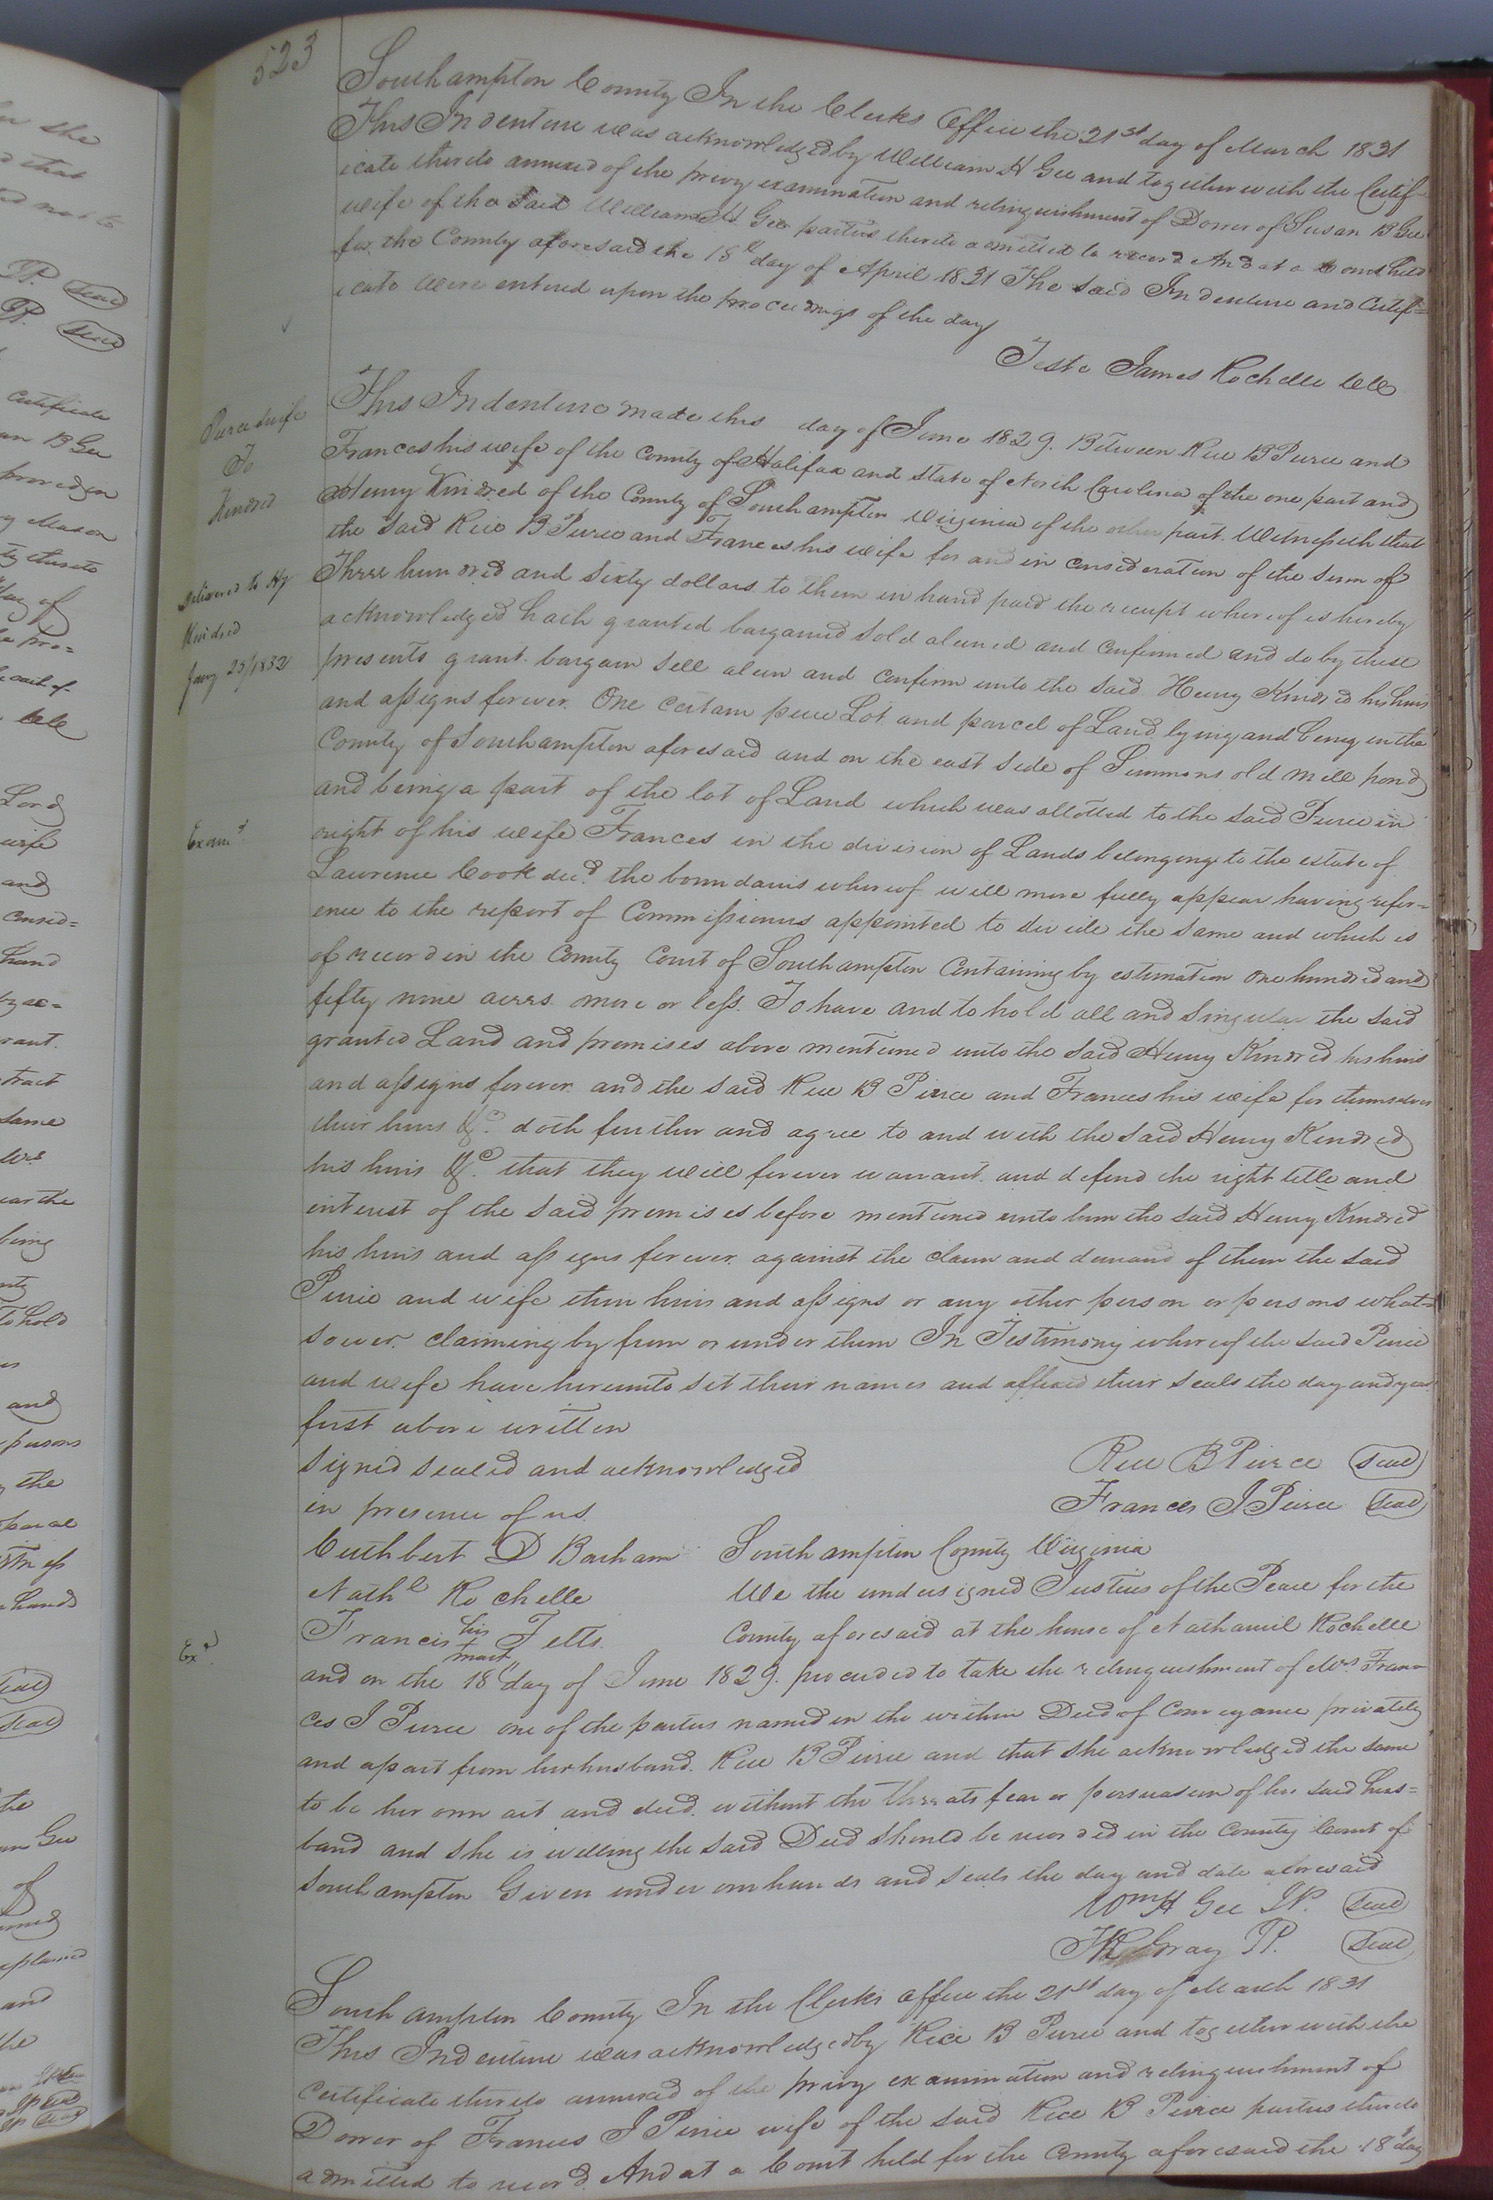 523
Southampton County In the Clerks Office the 21st day of March 1831
This Indenture was acknowledged by William H Gee and together with the Certif-
icate thereto annexed of the privy examination and relinquishment of Dower of Susan B Gee
wife of the said William H Gee parties thereto admitted to record And at a Court held
for the County aforesaid the 18th day of April 1831 The said Indenture and Certif=
icate were entered upon the proceedings of the day
Teste James Rochelle Clk
Peirce & wife
To
Kindred
Delivered to Hy
Kindred
Jany 25/1832
Exam.d
This Indenture made this day of June 1829. Between Rice B Peirce and
Frances his wife of the County of Halifax and State of North Carolina of the one part and
Henry Kindred of the County of Southampton Virginia of the other part. Witnesseth that
the said Rice B Peirce and Frances his wife for and in consideration of the sum of
Three hundred and sixty dollars to them in hand paid the receipt whereof is hereby
acknowledged hath granted bargained sold aliened and confirmed and do by these
presents grant. bargain sell alien and confirm unto the said Henry Kindred his heirs
and assigns forever. One certain piece Lot and parcel of Land lying and being in the
County of Southampton aforesaid and on the east side of Simmons old mill pond
and being a part of the lot of Land which was allotted to the said Peirce in
right of his wife Frances in the division of Lands belonging to the estate of
Lawrence Cook decd. the boundaries whereof will more fully appear having refer=
ence to the report of Commissioners appointed to divide the same and which is
of record in the County Court of Southampton Containing by estimation one hundred and
fifty nine acres more or less. To have and to hold all and singular the said
granted Land and premises above mentioned unto the said Henry Kindred his heirs
and assigns forever. and the said Rice B Peirce and Frances his wife for themselves
their heirs &c. doth further and agree to and with the said Henry Kindred
his heirs &c. that they will forever warrant. and defend the right title and
interest of the said premises before mentioned unto him the said Henry Kindred
his heirs and assigns forever. against the claim and demand of them the said
Peirce and wife their heirs and assigns or any other person or persons what=
soever. claiming by from or under them In Testimony whereof the said Peirce
and wife have hereunto set their names and affixed their seals the day and year
first above written
Signed sealed and acknowledged
in presence of us.
Rice B Peirce Seal
Frances J Peirce Seal
Cuthbert D Barham
Nathl Rochelle
Francis his mark Felts.
Exd.
Southampton County Virginia
We the undersigned Justices of the Peace for the
County aforesaid at the house of Nathaniel Rochelle
and on the 18th day of June 1829. proceeded to take the relinquishment of Mrs Fran-
ces J Peirce one of the parties named in the within Deed of Conveyance privately
and apart from her husband. Rice B Peirce and that she acknowledged the same
to be her own act and deed. without the threats fear or persuasion of her said hus=
band and she is willing the said Deed should be recorded in the County Court of
Southampton Given under our hands and seals the day and date aforesaid
Wm H Gee J.P. Seal
Gray J.P. Seal
Southampton County In the Clerks office the 21st day of March 1831
This Indenture was acknowledged by Rice B Peirce and together with the
Certificate thereto annexed of the privy examination and relinquishment of
Dower of Frances J Peirce wife of the said Rice B Peirce parties thereto
admitted to record. And at a Court held for the County aforesaid the 18th day